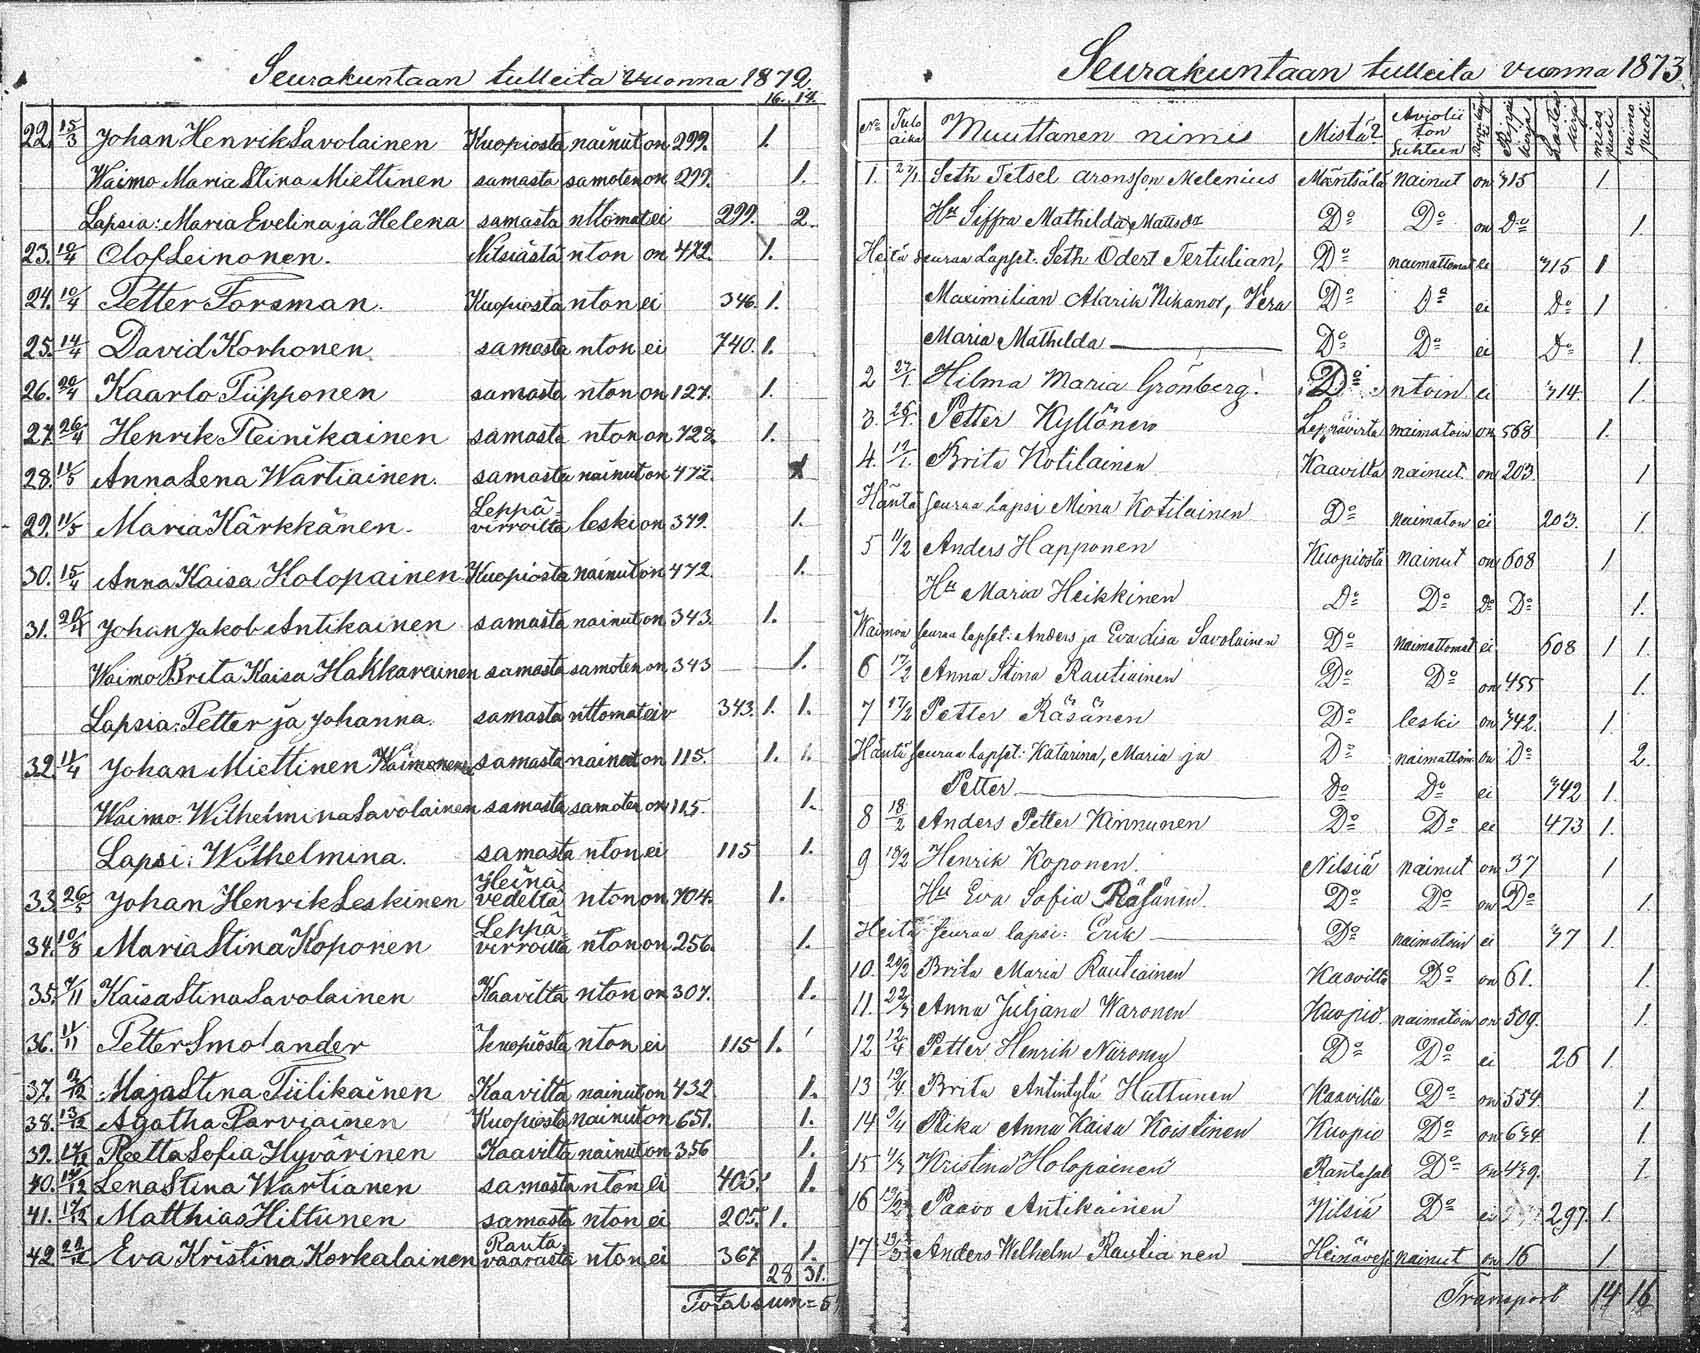 Seurakuntaan tulleita vuonna 1872.
16. 14.
22. 15/3 Johan Henrik Savolainen Kuopiosta nainut on 299. 1.
Waimo Maria Stina Miettinen samasta samoten on 299. 1.
Lapsia: Maria Evelina ja Helena samasta nttomat ei 299. 2.
23. 10/4 Olof Leinonen. Nilsiästä nton on 472. 1.
24. 10/4 Petter Forsman. Kuopiosta nton ei 346. 1.
25. 14/4 David Korhonen samasta nton ei 740. 1.
26. 20/4 Kaarlo Piipponen samasta nton on 127. 1.
27. 26/4 Henrik Reinikainen samasta nton on 728. 1.
28. 11/5 Anna Lena Wartiainen. samasta nainut on 472. 1
29. 11/5 Maria Kärkkänen. Leppä-virroilta leski on 379. 1.
30. 15/4 Anna Kaisa Holopainen Kuopiosta nainut on 472. 1.
31. Johan Jakob Antikainen samasta nainut on 343. 1.
Waimo Brita Kaisa Hakkarainen samasta samoten on 343 1.
Lapsia: Petter ja Johanna. samasta nttomat ei 343. 1. 1.
32. 11/4 Johan Miettinen samasta nainut on 115. 1. 1.
Waimo. Wilhelmina Savolainen samasta samoten on 115. 1.
Lapsi: Wilhelmina. samasta nton ei 115 1.
33. 26/5 Johan Henrik Leskinen Heinä-vedeltä nton on 704. 1.
34. 10/8 Maria Stina Koponen Leppä-virroilta nton on 256. 1.
35. 7/11 Kaisa Stina Savolainen Kaavilta nton on 307. 1.
36. 11/11 Petter Smolander Kuopiosta nton ei 115 1.
37. 9/12 Maja Stina Tiilikainen Kaavilta nainut on 432 1.
38. 13/12 Agatha Parviainen Kuopiosta nainut on 651. 1.
39. 14/12 Reetta Sofia Hyvärinen Kaavilta nainut on 356 1.
40. 14/12 Lena Stina Wartianen samasta nton ei 405. 1.
41. 17/12 Matthias Hiltunen samasta nton ei 205. 1.
42. 22/12 Eva Kristina Korkalainen Rauta-vaarasta nton ei 367 1.
28 31.
Total sum = 5
Seurakuntaan tulleita vuonna 1873.
No Tulo aika Muuttanen nimis Mistä? Aviolii ton suhteen Rippi kirja Lasten kirja mies puoli vaimo puoli.
1. 2/1 Seth Tetsel Aronsson Melenius Mäntsälä nainut on 315 1
Hu Siffra Mathilda Do Do on Do 1.
Heitä seuraa Lapset. Seth Odert Tertulian, Do naimattomat ei 315 1
Maximilian Alarik Nikanor, Vera Do Do ei Do 1
Maria Mathilda Do Do ei Do 1.
2 27/1 Hilma Maria Grönberg. Do ntoin ei 314. 1.
3. 26/1 Petter Kyllönen Leppävirta naimatoin on 568 1.
4. 12/1 Brita Kotilainen Kaavilta nainut. on 203. 1
Häntä seuraa Lapsi Mina Kotilainen Do naimaton ei 203. 1.
5 11/2 Anders Happonen Kuopiosta nainut on 608 1
Hu Maria Heikkinen Do Do Do Do 1.
Waimoa seuraa lapset: Anders ja Eva Lisa Savolainen Do Naimattomat ei 608 1 1.
6 17/2 Anna Stina Rautiainen Do Do on 455 1.
7 17/2 Petter Räsänen Do leski on 342. 1.
Häntä seuraa lapset: Katarina, Maria ja Do naimattom. on Do 2.
Petter Do Do ei 342 1.
8 18/2 Anders Petter Kinnunen Do Do ei 473 1.
9 18/2 Henrik Koponen. Nilsiä nainut on 37 1
Hu Eva Sofia Räsänin. Do Do on Do 1.
Heitä seuraa lapsi: Erik Do naimatoin ei 37 1.
10. 20/2 Brita Maria Rautiainen Kaavilta Do on 61. 1.
11. 22/3 Anna Juljana Waronen Kuopio. naimatoin on 509. 1.
12 12/4 Petter Henrik Niironen Do Do ei 26 1.
13 19/4 Brita Antintytä Huttunen Kaavilta Do on 554 1.
14 9/4 Riika Anna Kaisa Koistinen Kuopio Do on 634. 1.
15 4/3 Kristina Holopainen Rautasal Do on 439. 1.
16 Paavo Antikainen Nilsiä Do ei 297. 1.
17 Anders Welhelm Rautianen Heinävesi nainut on 16 1
Transport 14 16